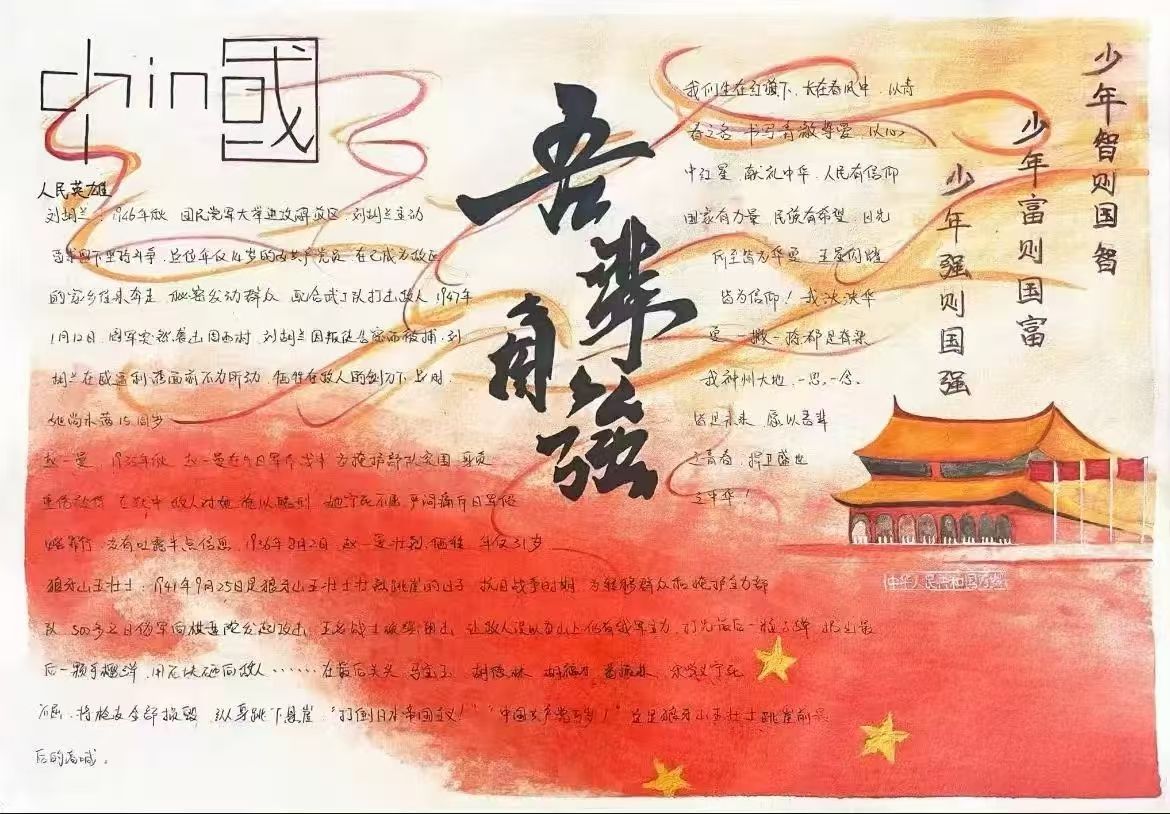 chin國
人民英雄
刘胡兰:1946年秋 国民党军大举进攻解放区,刘胡兰主动
的家乡往来奔走 秘密发动群众 配合武工队打击敌人 1947年
1月12日 国军突然袭击 刘胡兰因叛徒告密而被捕,刘
胡兰在威逼利诱面前不为所动 牺牲在敌人的铡刀下
她尚未满15周岁
赵一曼 1935年秋 赵一曼在与日军作战中 为掩护部队突围 身负
重伤被俘 在狱中 敌人对她施以酷刑 她宁死不屈 严词痛斥日军侵
略罪行 没有吐露半点信息 1936年8月2日 赵一曼壮烈牺牲 年仅31岁
狼牙山五壮士:1941年9月25日是狼牙山五壮士壮烈跳崖的日子 抗日战争时期 为转移群众和掩护主力部
队 500多名日伪军向棋盘陀发起攻击 打光最后一粒子弹
后一颗手榴弹 用石块砸向敌人……在最后关头 马宝玉 胡德林 胡福才 葛振林 宋学义宁死
不屈,将枪支全部损毁 纵身跳下悬崖,“打倒日本帝国主义!”“中国共产党万岁!”这是狼牙山五壮士跳崖前最
后的高喊。
吾辈
自强
我们生在红旗下,长在春风中,以青
春之名 书写
中红星,献礼中华,人民有信仰
国家有力量 民族有希望,目光
所至皆为华夏 五星闪耀
皆为信仰!我泱泱华
夏 一撇一捺都是脊梁
我神州大地,一思,一念,
皆是未来 愿以吾辈
之青春,捍卫盛世
之中华!
少年智则国智
少年富则国富
少年强则国强
中华人民共和国万岁